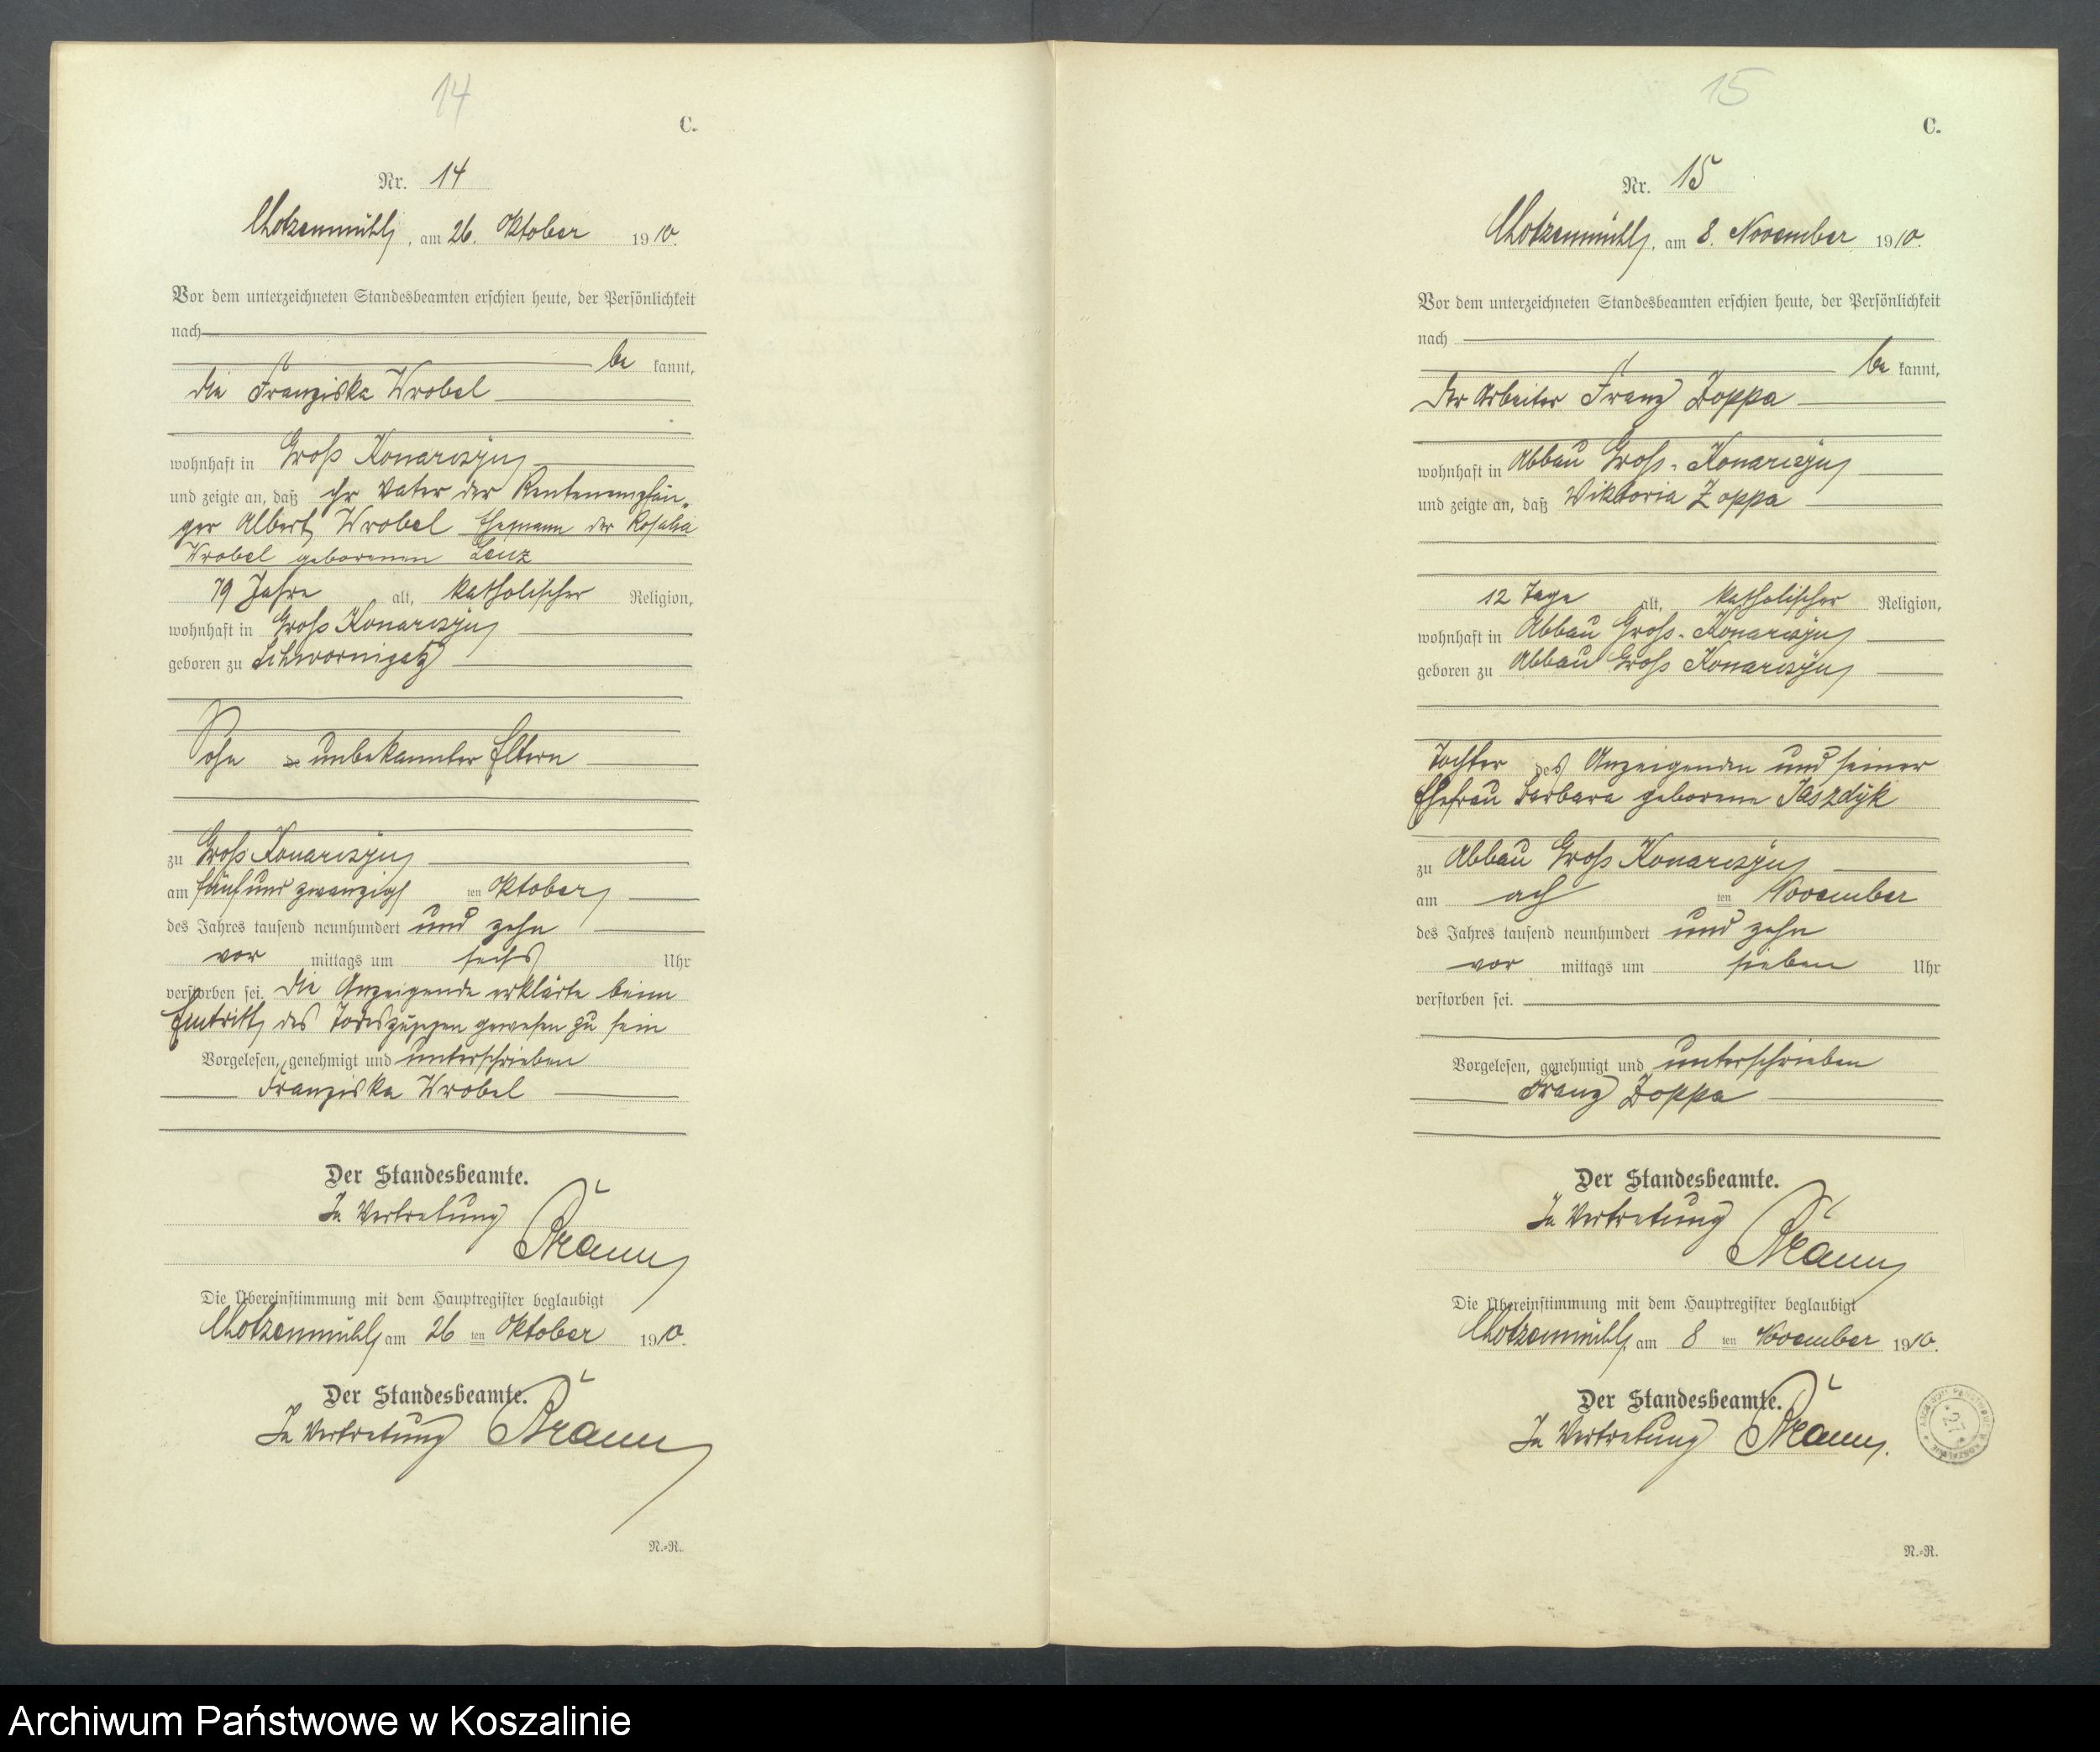 14
C.
Nr. 14
Chotzenmühl, am 26. Oktober 1910.
Vor dem unterzeichneten Standesbeamten erschien heute, der Persönlichkeit
nach
be kannt,
die Franziska Wrobel
wohnhaft in Groß Konarczyn
und zeigte an, daß ihr Vater der Rentenempfän-
ger Albert Wrobel Ehemann der Rosalia
Wrobel geborenen Lenz
79 Jahre alt, katholischer Religion,
wohnhaft in Groß Konarczyn
geboren zu Schwornigatz
Sohn unbekannter Eltern
zu Groß Konarczyn
am fünf und zwanzigsten Oktober
des Jahres tausend neunhundert und zehn
vor mittags um sechs Uhr
verstorben sei. Die Anzeigende erklärte beim
Eintritt des Todes zugegen gewesen zu sein
Vorgelesen, genehmigt und unterschrieben
Franziska Wrobel
Der Standesbeamte.
In Vertretung
Die Übereinstimmung mit dem Hauptregister beglaubigt
Chotzenmühl am 26 ten Oktober 1910.
Der Standesbeamte.
In Vertretung
N.-R.
15
C.
Nr. 15
Chotzenmühl, am 8. November 1910.
Vor dem unterzeichneten Standesbeamten erschien heute, der Persönlichkeit
nach
be kannt,
der Arbeiter Franz Zoppa
wohnhaft in Abbau Groß-Konarczyn
und zeigte an, daß Wiktoria Zoppa
12 Tage alt, katholischer Religion,
wohnhaft in Abbau Groß-Konarczyn
geboren zu Abbau Groß Konarczyn
Tochter des Anzeigenden und seiner
Ehefrau Barbara geborene Jaszdyk
zu Abbau Groß Konarczyn
am ach ten November
des Jahres tausend neunhundert und zehn
vor mittags um sieben Uhr
verstorben sei.
Vorgelesen, genehmigt und unterschrieben
Franz Zoppa
Der Standesbeamte.
In Vertretung
Die Übereinstimmung mit dem Hauptregister beglaubigt
Chotzenmühl, am 8 ten November 1910.
Der Standesbeamte.
In Vertretung
N.-R.
Archiwum Państwowe w Koszalinie